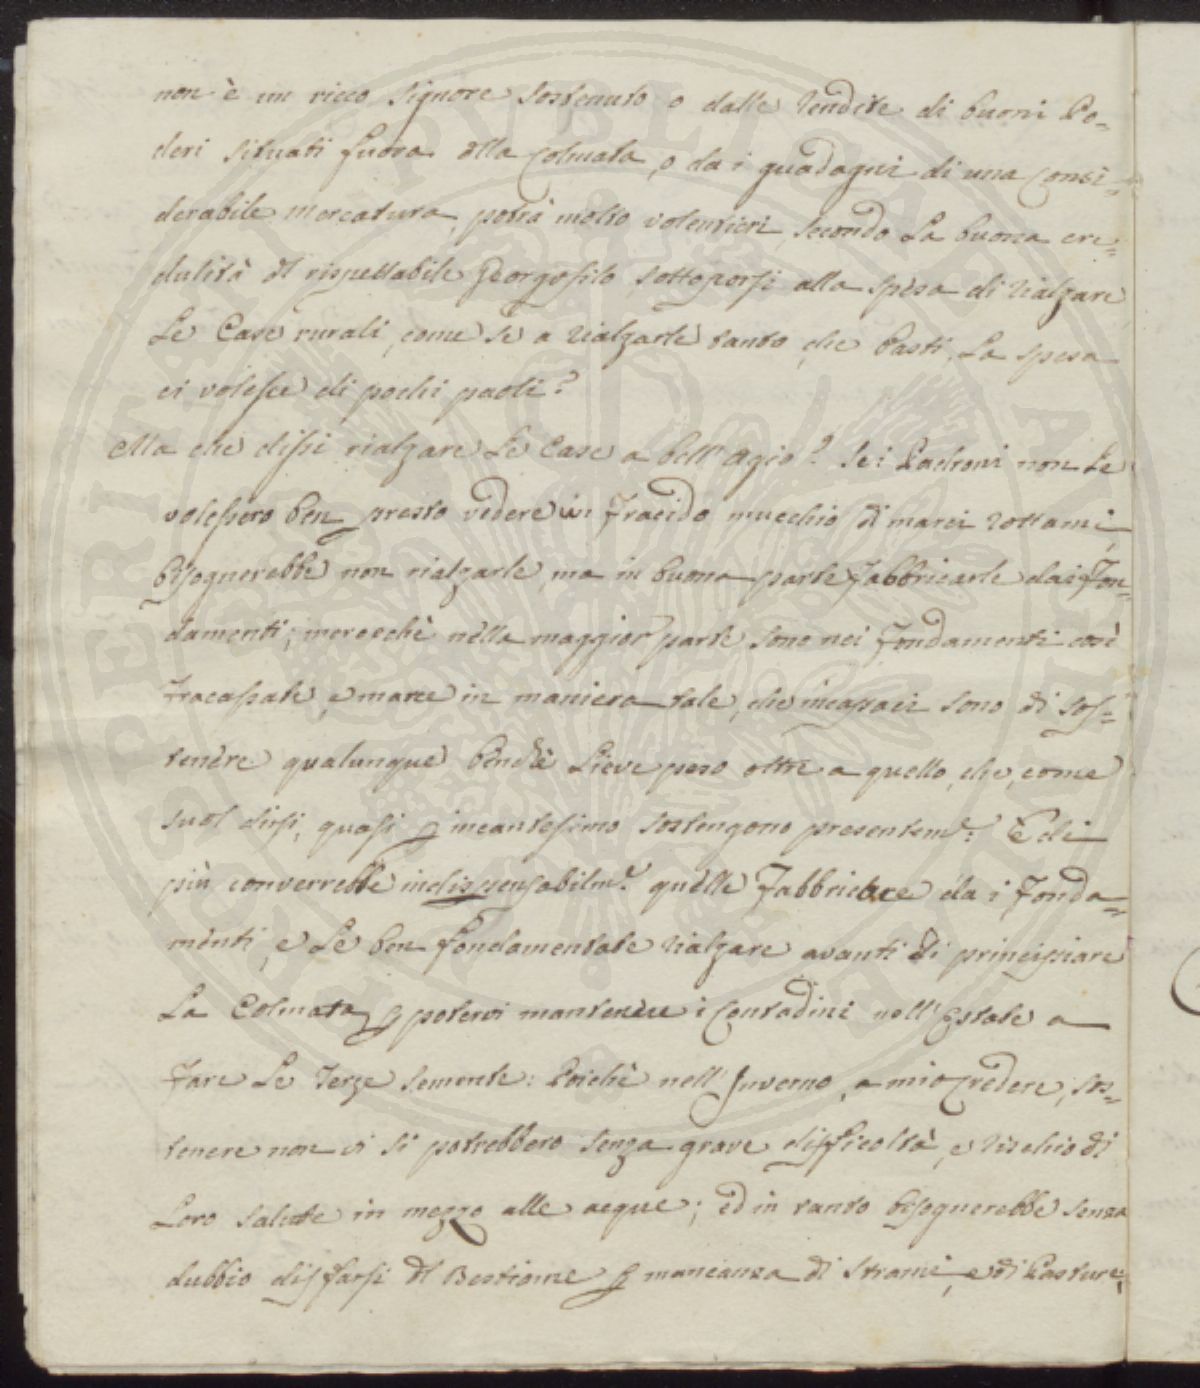 non è un ricco Signore sostenuto o dalle Rendite di buoni Po=
deri situati fuora dlla Colmata, o da i guadagni di una Consi=
derabile mercatura, potrà molto volentieri, secondo La buona cre=
dulità dl rispettabile Georgofilo sottoporsi alla spèsa di Rialzare
Le Case rurali, come se a Rialzarle tanto, che basti, La spesa
ci volesse di pochi paoli?
Ma che dissi rialzare Le Case a bell'Agio? Se i Padroni non Le
volessero ben presto vedere un fracido mucchio di marci rottami,
bisognerebbe non rialzarle, ma in buona parte Fabbricarle dai Fon=
damenti; merecchè nella maggior parte sono nei fondamenti così
fracassate, e marce in maniera tale, che incapaci sono di sos=
tenère qualunque benchè Lieve peso oltre a quello, che, come
suol dirsi, quasi p incantesimo sostengono presentem.e: E di
più converrebbe indispensabilm.e quelle Fabbricare da i Fonda=
menti, e Le ben fondamentate Rialzare avanti di principiare
La Colmata p potervi mantenere i Contadini nell'Estate a
fare Le Terze semente: Poichè nell'Inverno, a mio Credere, sos=
tenere non vi si potrebbero senza grave difficoltà, e Rischio di
Loro salute in mezzo alle acque; ed in tanto bisognerebbe senza
dubbio disfarsi dl Bestiame p mancanza di strami, e di Pasture;
PUBLICAE UTILITATI